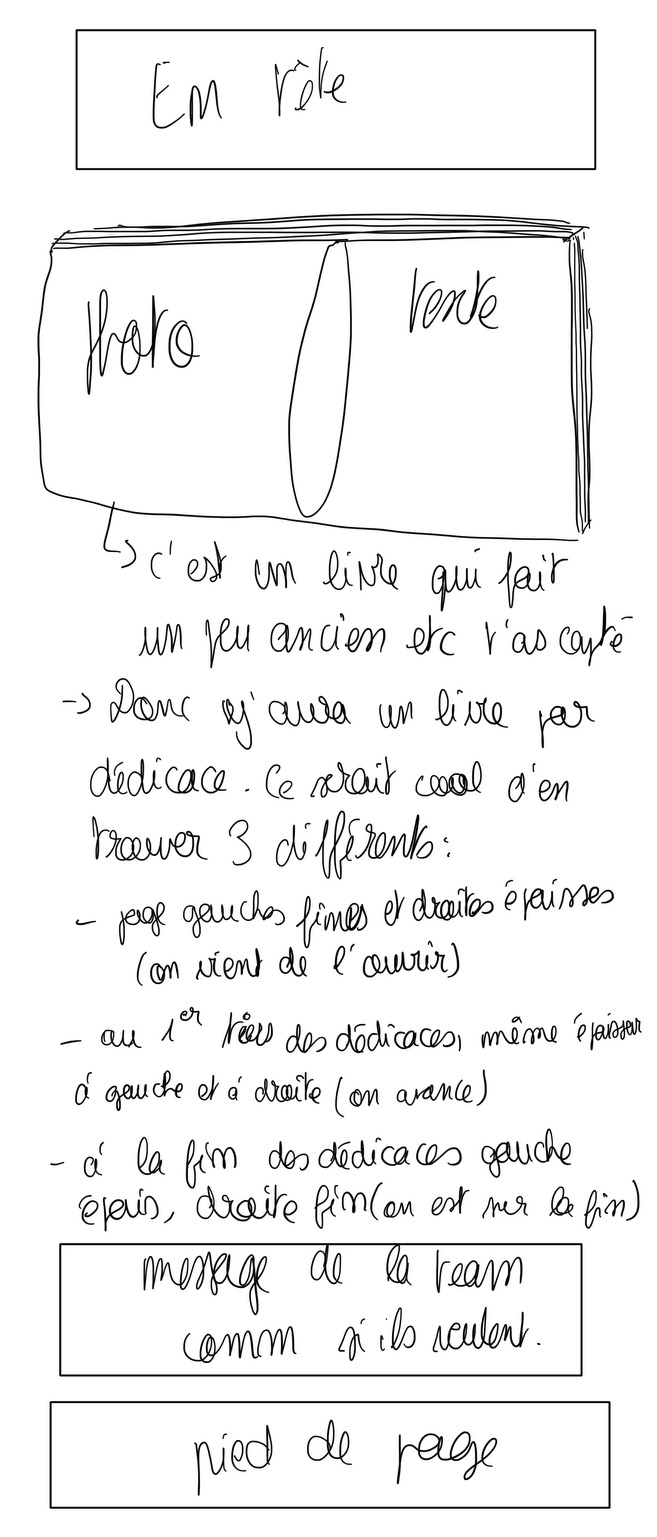 En tête
Photo
texte
↳ c'est un livre qui fait
un peu ancien etc t'as capté
-> Donc y'aura un livre par
dédicace. Ce serait cool d'en
trouver 3 différents:
- page gauches fines et droites épaisses
(on vient de l'ouvrir)
- au 1er tiers des dédicaces, même épaisseur
à gauche et à droite (on avance)
- à la fin des dédicaces gauche
épais, droite fin (on est sur la fin)
message de la team
comm si ils veulent.
pied de page